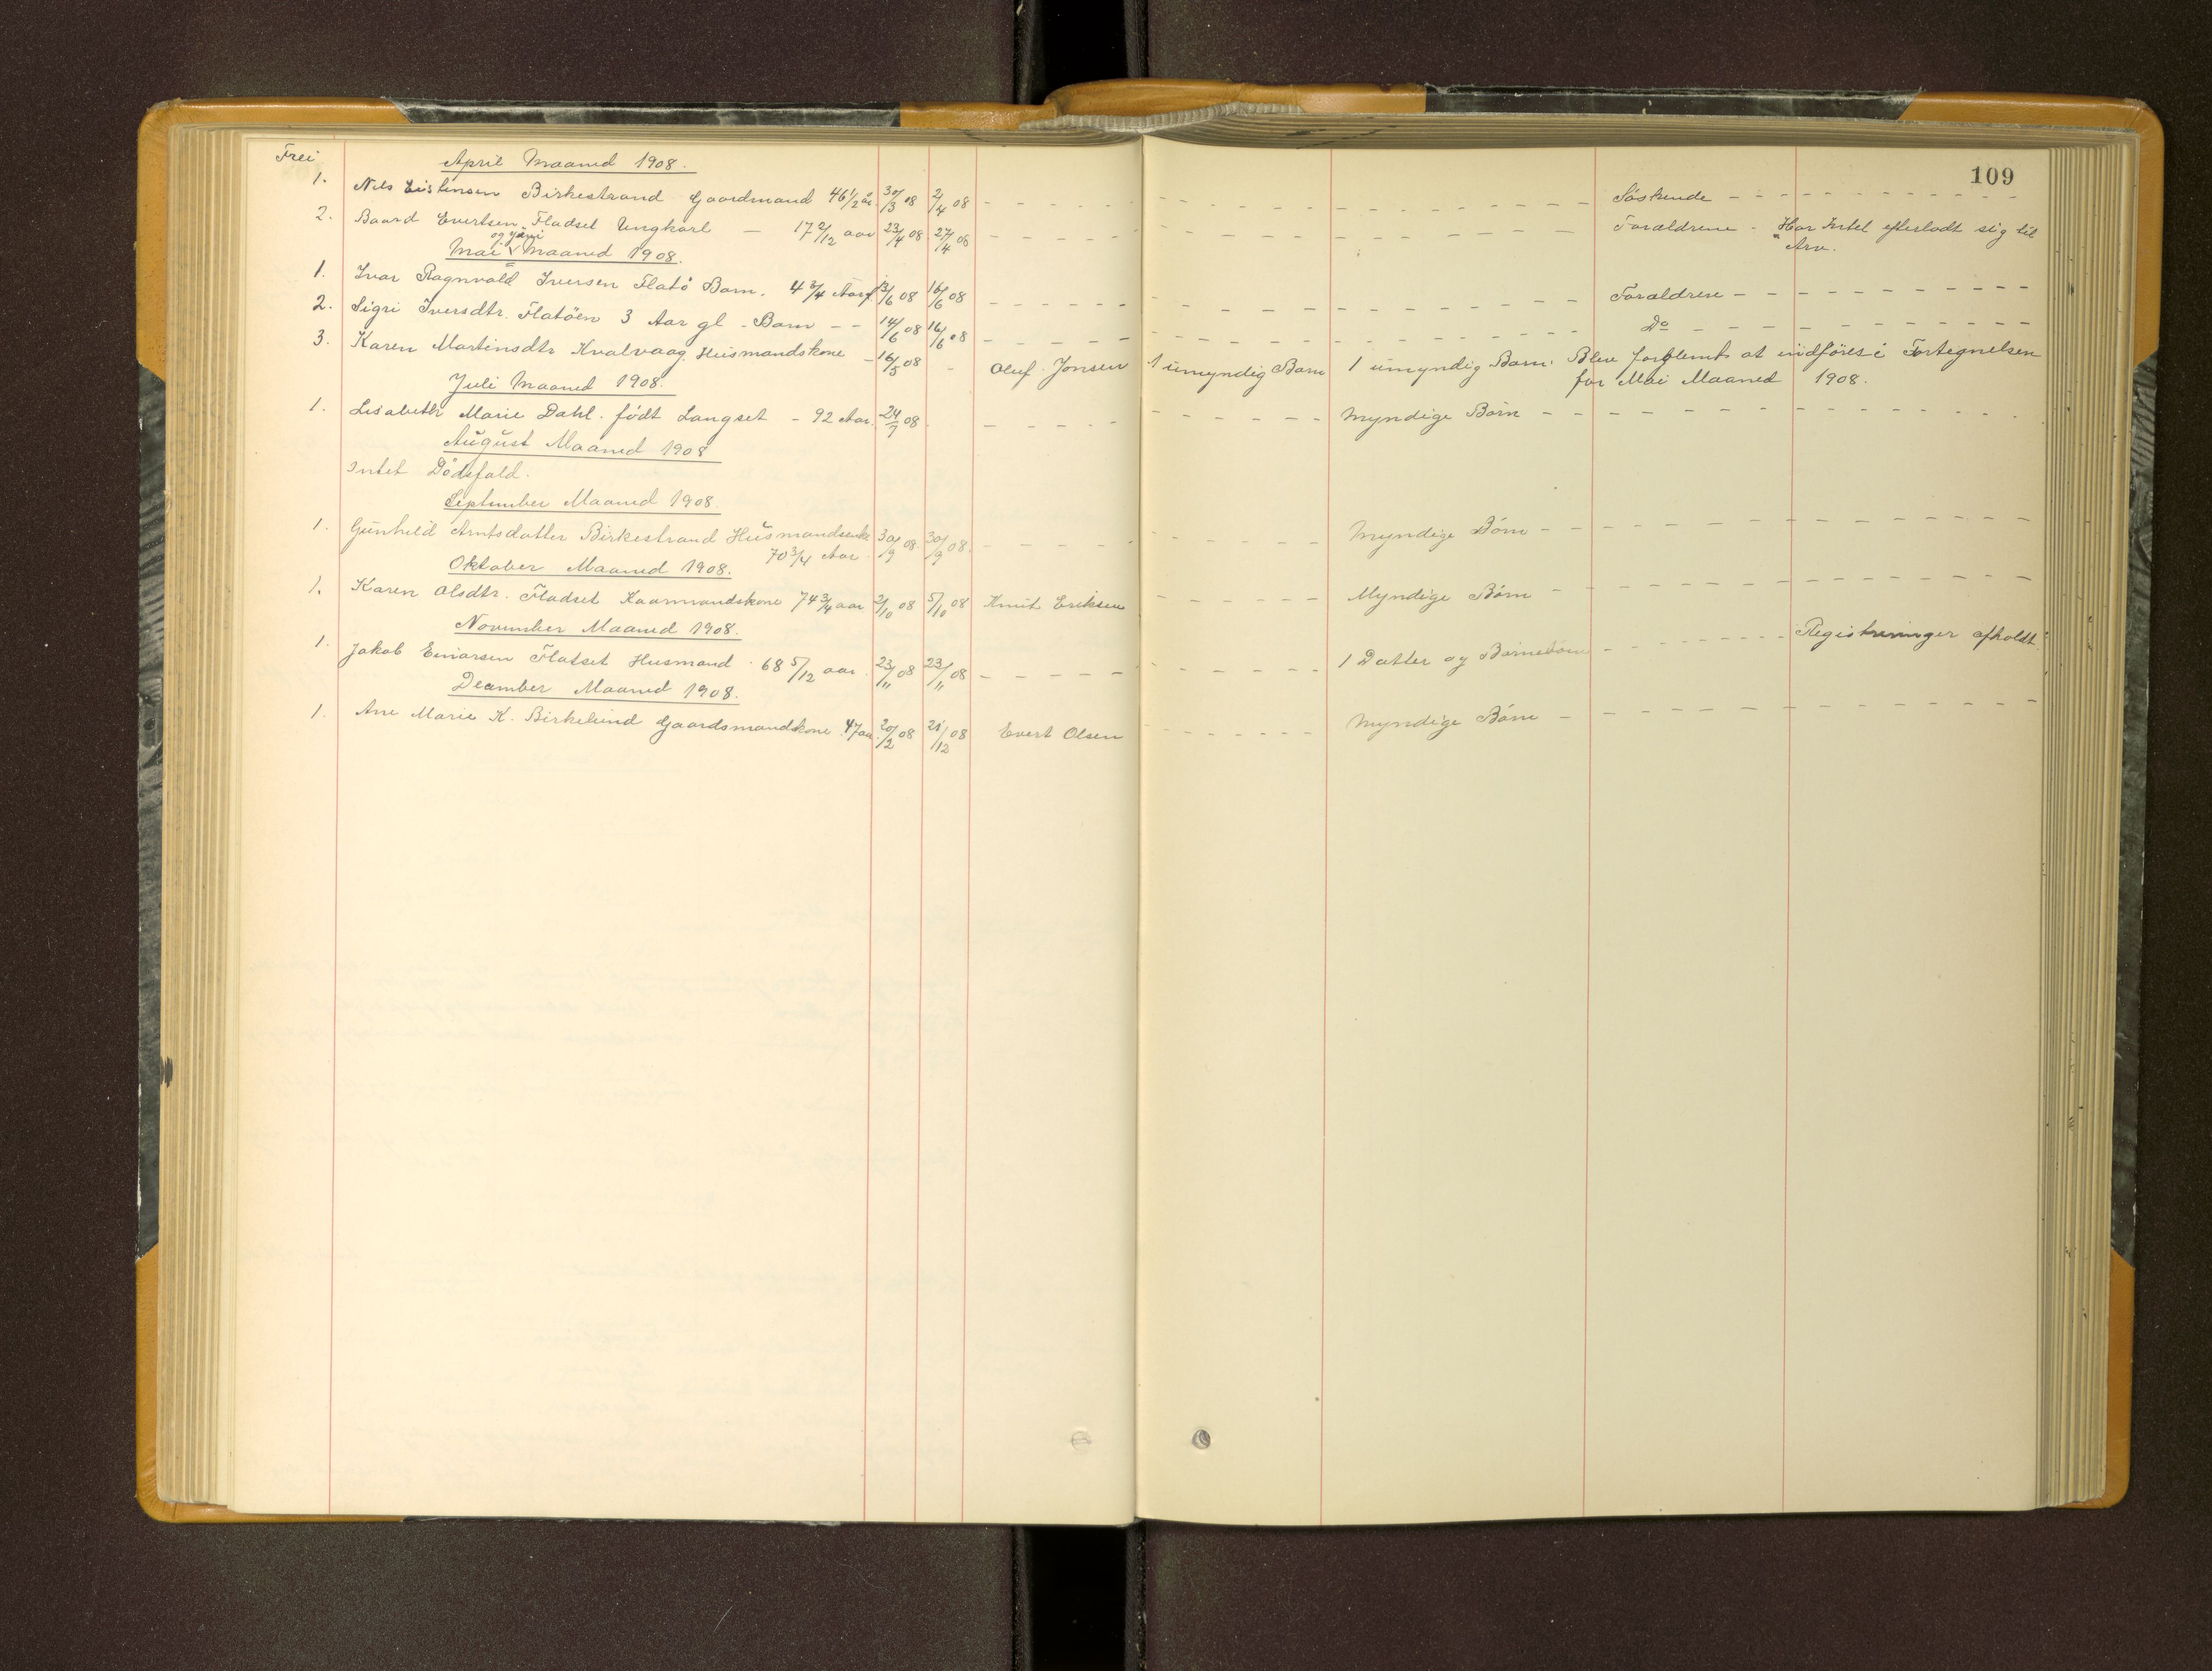 109
Frei
April Maaned 1908.
1. Nils Eistensen Birkestrand Gaardmand 46 1/2 år. 30/3 08 2/4 08 - - - - - - Søskende - - - -
2. Baard Evertsen Fladset Ungkarl — 17 2/12 aar 23/4 08 27/4 08 - - - - - - Forældrene - Har Intet efterladt sig til
Arv.
og Juni
Mai Maaned 1908.
1. Ivar Ragnvald Iversen Flatö Barn. 4 3/4 Aar 13/6 08 16/6 08 - - - - - - Forældrene - - - -
2. Sigri Iversdtr. Flatöen 3 Aar gl - Barn - - 14/6 08 16/6 08 - - - - - - Do - - - -
3. Karen Martinsdtr Kvalvaag Husmandskone - 16/5 08 - Oluf Jonsen 1 umyndig Barn 1 umyndig Barn. Blev forglemt at indföres i Fortegnelsen
for Mai Maaned 1908.
Juli Maaned 1908.
1. Lisabeth Marie Dahl. födt Langset - 92 Aar. 24/7 08 - - - - Myndige Börn - - - -
August Maaned 1908
Intet Dödsfald.
September Maaned 1908.
1. Gunhild Arntsdatter Birkestrand Husmandsenke 30/9 08. 30/9 08. - - - - Myndige Börn - - - -
70 3/4 Aar
Oktober Maaned 1908.
1. Karen Olsdtr. Fladset Kaarmandskone 74 3/4 aar 2/10 08 5/10 08 Knut Eriksen - - - - Myndige Börn - - - -
November Maaned 1908.
1. Jakob Einarsen Flatset Husmand 68 5/12 aar. 23/11 08 23/11 08 - - - - 1 Datter og Barnebörn - - - - Registreringer afholdt.
December Maaned 1908.
1. Ane Marie K. Birkelund Gaardsmandskone 47 aar. 20/2 08 21/12 08 Evert Olsen - - - - Myndige Börn - - - -